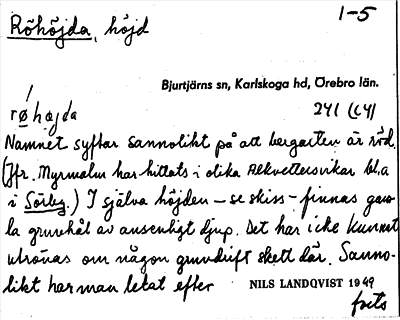 Röhöjda, höjd
1-5
Bjurtjärns sn, Karlskoga hd, Örebro län.
røhøjda
241 (C4)
Namnet syftar sannolikt på att bergarten är röd.
(Jfr. Myrmalm har hittats i olika Alkvettersvikar bl.a
i Sörleg.) I själva höjden – se skiss – finnas gam-
la gruvhål av ansenligt djup. Det har icke kunnat
utrönas om någon gruvdrift skett där. Sanno-
likt har man letat efter
NILS LANDQVIST 1949
forts